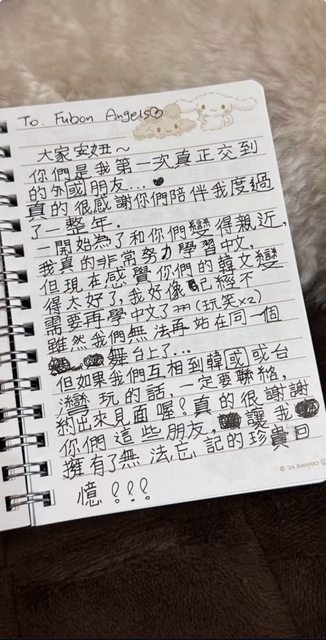 To. Fubon Angels♡
大家安妞~
你們是我第一次真正交到
的外國朋友...♥
真的很感謝你們陪伴我度過
了一整年.
一開始為了和你們變得親近,
我真的非常努力學習中文.
但現在感覺你們的韓文變
得太好了,我好像已經不
需要再學中文了ㅋㅋㅋ(玩笑x2)
雖然我們無法再站在同一個
舞台上了...
但如果我們互相到韓國或台
灣玩的話,一定要聯絡,
約出來見面喔?真的很謝謝
你們這些朋友,讓我
擁有了無法忘記的珍貴回
憶!!!
© '24 SANRIO